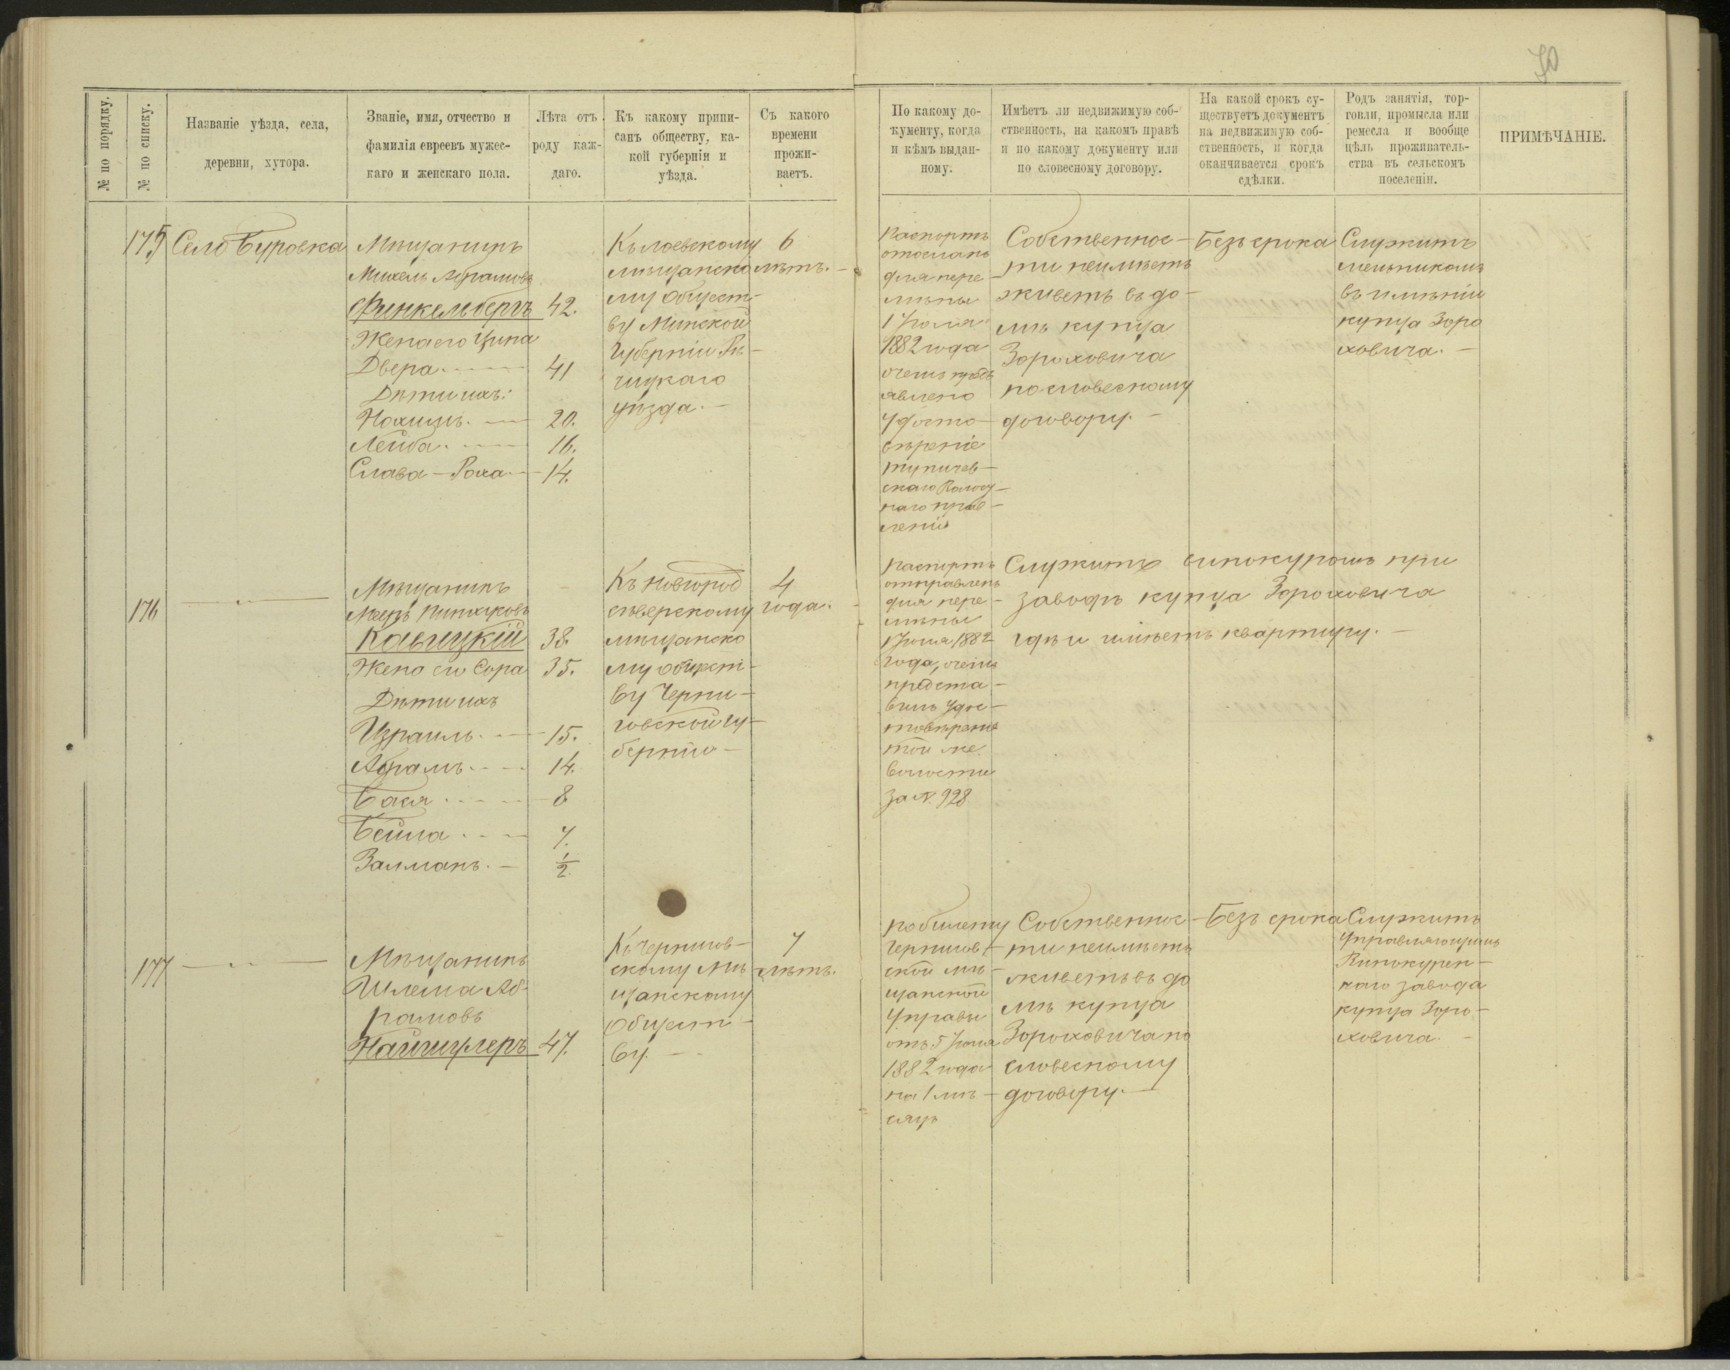 70
№ по порядку.
№ по списку.
Названіе уѣзда, села,
деревни, хутора.
Званіе, имя, отчество и
фамилія евреевъ мужес-
каго и женскаго пола.
Лѣта отъ
роду каж-
даго.
Къ какому припи-
санъ обществу, ка-
кой губерніи и
уѣзда.
Съ какого
времени
прожи-
ваетъ.
По какому до-
кументу, когда
и кѣмъ выдан-
ному.
Имѣетъ ли недвижимую соб-
ственность, на какомъ правѣ
и по какому документу или
по словесному договору.
На какой срокъ су-
ществуетъ документъ
на недвижимую соб-
ственность, и когда
оканчивается срокъ
сдѣлки.
Родъ занятія, тор-
говли, промысла или
ремесла и вообще
цѣль проживатель-
ства въ сельскомъ
поселеніи.
ПРИМѢЧАНІЕ.
175
Село Буровка
Мѣщанинъ
Михель Абрамовъ
Финкельбергъ 42.
Жена его Ципа
Двера 41
Дѣти ихъ:
Нохимъ 20.
Лейба 16.
Слава-Роха 14.
Къ лоевскому
мѣщанско
му общест-
ву Минской
Губерніи Рѣ-
чицкаго
уѣзда.
6
лѣтъ.
Паспортъ
отосланъ
для пере-
мѣны
1 Іюля
1882 года
о чемъ предъ
явлено
Удосто-
вѣреніе
Тупичев-
скаго Волост-
наго прав-
ленія
Собственнос-
ти неимѣетъ
живетъ въ до-
мѣ купца
Зороховича
по словесному
договору.
Безъ срока
Служитъ
мельникомъ
въ имѣніи
купца Зоро
ховича.
176
Мѣщанинъ
Мееръ Пинхусовъ
38.
Жена его Сора 35.
Дѣти ихъ
Израиль 15.
Абрамъ 14.
Бася 8
Бейла 7.
Залманъ 1/2
Къ Новгород
сѣверскому
мѣщанско
му общест-
ву Черни-
говской гу-
берніи
4
года.
Паспортъ
отправленъ
для пере-
мѣны
1 Іюля 1882
года, о чемъ
предста-
вилъ Удос-
товѣреніе
той же
волости
за № 928
Служитъ винокуромъ при
заводѣ купца Зороховича
гдѣ и имѣетъ квартиру.
177
Мѣщанинъ
Шлема Аб-
рамовъ
Найшулеръ 47.
Къ Чернигов-
скому мѣ-
щанскому
Общест-
ву.
7
лѣтъ.
По билету
Чернигов-
ской мѣ-
щанской
Управы
отъ 5 Іюля
1882 года
на 1 мѣ-
сяцъ
Собственнос-
ти неимѣетъ
живетъ въ до
мѣ купца
Зороховича по
словесному
договору.
Безъ срока
Служитъ
Управляющимъ
Винокурен-
наго завода
купца Зоро-
ховича.